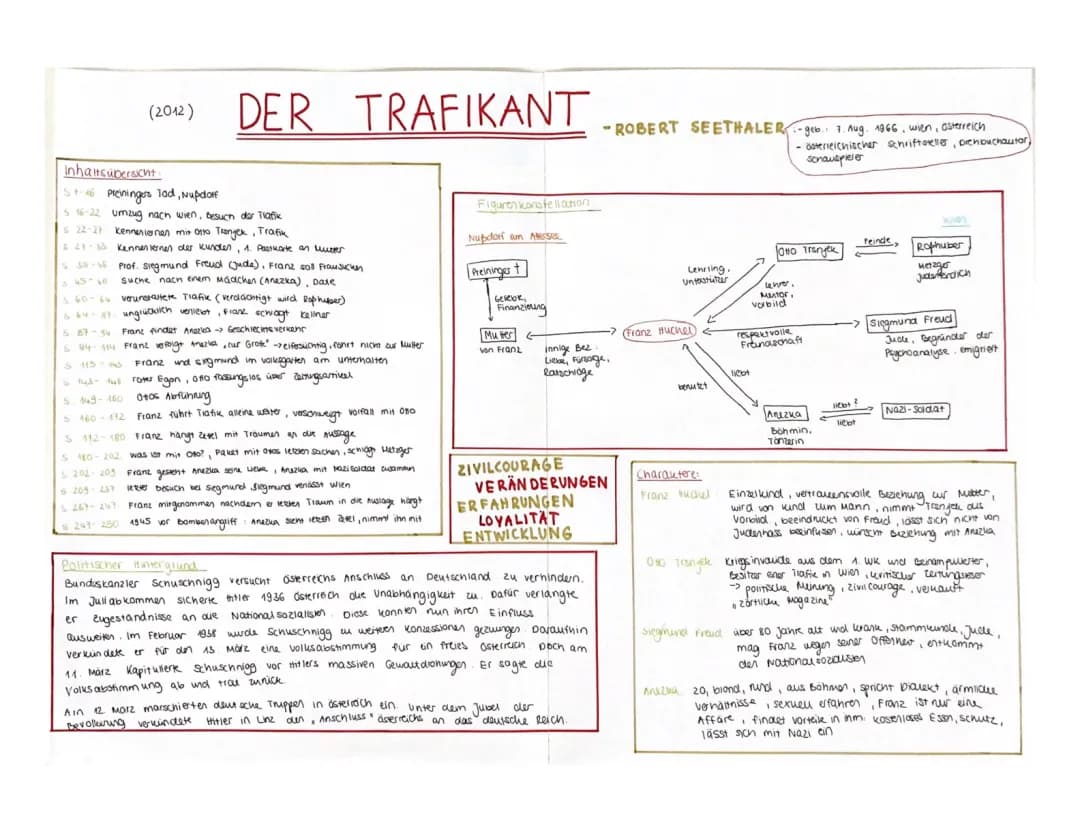 (2012)
DER TRAFIKANT
- ROBERT SEETHALER
- geb.: 7. Aug. 1966, Wien, Österreich
- österreichischer Schriftsteller, Drehbuchautor,
Schauspieler
Inhaltsübersicht:
Preiningers Tod, Nußdorf
S 16-22 Umzug nach Wien, Besuch der Trafik
S 22-27 Kennenlernen mit Otto Trsnjek, Trafik
Kennenlernen der Kunden, 1. Postkarte an Mutter
Prof. Siegmund Freud (Jude), Franz soll Frau suchen
S 45-60 Suche nach einem Mädchen (Anezka), Date
S 60-64 verunstaltete Trafik (verdächtigt wird Roßhuber)
unglücklich verliebt, Franz schlägt Kellner
S 87-94 Franz findet Anezka → Geschlechtsverkehr
Franz verfolgt Anezka "zur Grotte" → eifersüchtig, fährt nicht zur Mutter
Franz und Siegmund im Volksgarten am unterhalten
roter Egon, Otto fassungslos über Zeitungsartikel
S. 149-160 Ottos Abführung
S 160-172 Franz führt Trafik alleine weiter, verschweigt Vorfall mit Otto
S 172-180 Franz hängt Zettel mit Träumen an die Auslage
S 180-202 Was ist mit Otto?, Paket mit Ottos letzten Sachen, schlägt Metzger
S 202-209 Franz gesteht Anezka seine Liebe, Anezka mit Nazisoldat zusammen
S 209-237 letzter Besuch bei Siegmund, Siegmund verlässt Wien
Franz mitgenommen nachdem er letzten Traum in die Auslage hängt
1945 vor Bombenangriff: Anezka sieht letzten Zettel, nimmt ihn mit
Figurenkonstellation
Nußdorf am Attersee
Wien
Preininger †
Geliebte,
Finanzierung
Mutter
von Franz
innige Bez.
Liebe, Fürsorge,
Ratschläge
Franz Huchel
Lehrling,
Unterstützer
Lehrer,
Mentor,
Vorbild
Otto Trsnjek
Feinde
Roßhuber
Metzger
judenfeindlich
respektvolle
Freundschaft
Siegmund Freud
Jude, Begründer der
Psychoanalyse, emigriert
benutzt
liebt
Anezka
Böhmin,
Tänzerin
liebt?
liebt
Nazi-Soldat
ZIVILCOURAGE
VERÄNDERUNGEN
ERFAHRUNGEN
LOYALITÄT
ENTWICKLUNG
Politischer Hintergrund
Bundeskanzler Schuschnigg versucht Österreichs Anschluss an Deutschland zu verhindern.
Im Juliabkommen sicherte Hitler 1936 Österreich die Unabhängigkeit zu. Dafür verlangte
er Zugeständnisse an die Nationalsozialisten. Diese konnten nun ihren Einfluss
ausweiten. Im Februar 1938 wurde Schuschnigg zu weiteren Konzessionen gezwungen. Daraufhin
verkündete er für den 13 März eine Volksabstimmung für ein freies Österreich. Doch am
11. März kapitulierte Schuschnigg vor Hitlers massiven Gewaltdrohungen. Er sagte die
Volksabstimmung ab und trat zurück.
Am 12 März marschierten deutsche Truppen in Österreich ein. Unter dem Jubel der
Bevölkerung verkündete Hitler in Linz den "Anschluss" Österreichs an das deutsche Reich.
Charaktere:
Franz Huchel Einzelkind, vertrauensvolle Beziehung zur Mutter,
wird von Kind zum Mann, nimmt Trsnjek als
Vorbild, beeindruckt von Freud, lässt sich nicht von
Judenhass beeinflussen, wünscht Beziehung mit Anezka
Otto Trsnjek Kriegsinvalide aus dem 1. WK und beinamputierter,
Besitzer einer Trafik in Wien, kritischer Zeitungsleser
→ politische Meinung, Zivilcourage, verkauft
"zärtliche Magazine"
Siegmund Freud über 80 Jahre alt und krank, Stammkunde, Jude,
mag Franz wegen seiner Offenheit, entkommt
den Nationalsozialisten
Anezka 20, blond, rund, aus Böhmen, spricht Dialekt, ärmliche
Verhältnisse, sexuell erfahren, Franz ist nur eine
Affäre, findet Vorteile in ihm: kostenloses Essen, Schutz,
lässt sich mit Nazi ein